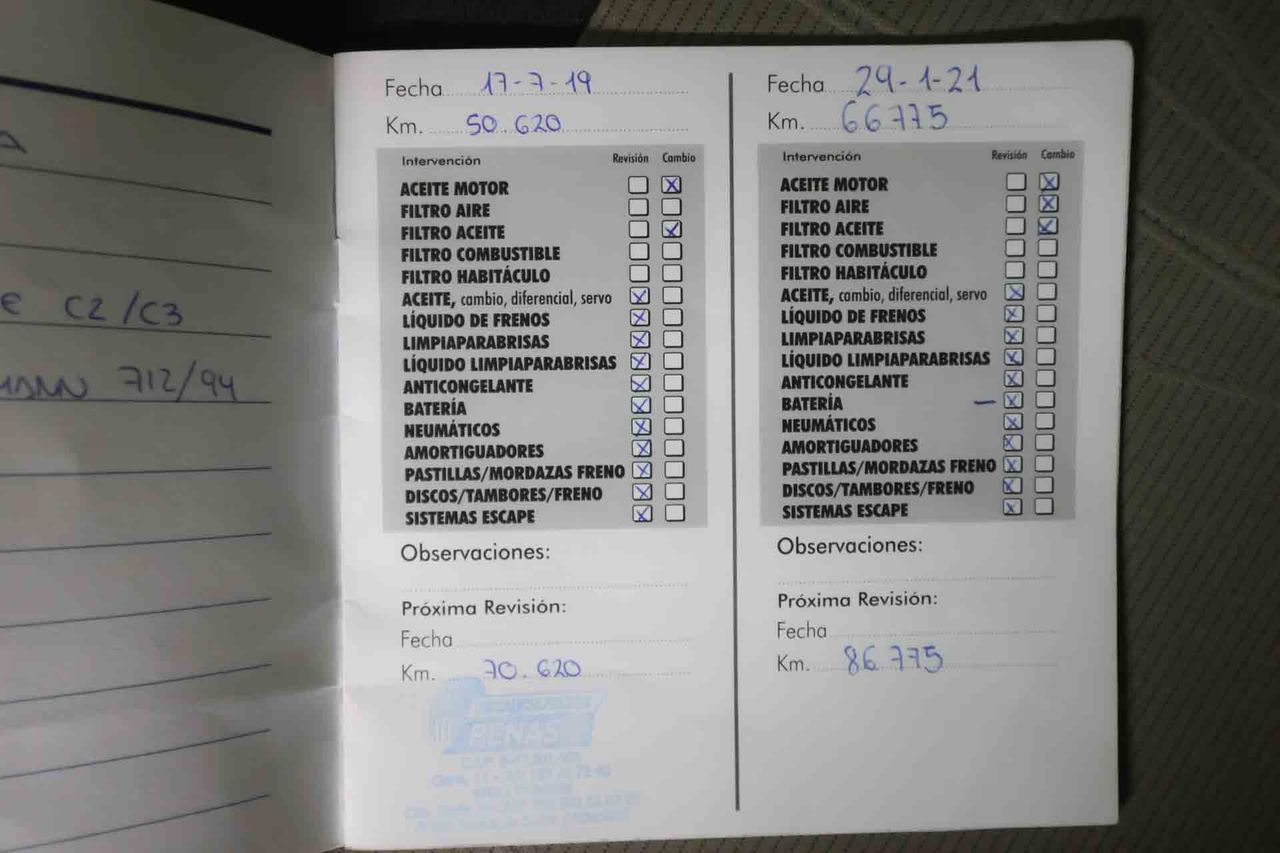 C2/C3
712/94
Fecha 17-7-19
Km. 50.620
Intervención Revisión Cambio
ACEITE MOTOR
FILTRO AIRE
FILTRO ACEITE
FILTRO COMBUSTIBLE
FILTRO HABITÁCULO
ACEITE, cambio, diferencial, servo
LÍQUIDO DE FRENOS
LIMPIAPARABRISAS
LÍQUIDO LIMPIAPARABRISAS
ANTICONGELANTE
BATERÍA
NEUMÁTICOS
AMORTIGUADORES
PASTILLAS/MORDAZAS FRENO
DISCOS/TAMBORES/FRENO
SISTEMAS ESCAPE
Observaciones:
Próxima Revisión:
Fecha
Km. 70.620
PENAS
Fecha 29-1-21
Km. 66775
Intervención Revisión Cambio
ACEITE MOTOR
FILTRO AIRE
FILTRO ACEITE
FILTRO COMBUSTIBLE
FILTRO HABITÁCULO
ACEITE, cambio, diferencial, servo
LÍQUIDO DE FRENOS
LIMPIAPARABRISAS
LÍQUIDO LIMPIAPARABRISAS
ANTICONGELANTE
BATERÍA
NEUMÁTICOS
AMORTIGUADORES
PASTILLAS/MORDAZAS FRENO
DISCOS/TAMBORES/FRENO
SISTEMAS ESCAPE
Observaciones:
Próxima Revisión:
Fecha
Km. 86.775